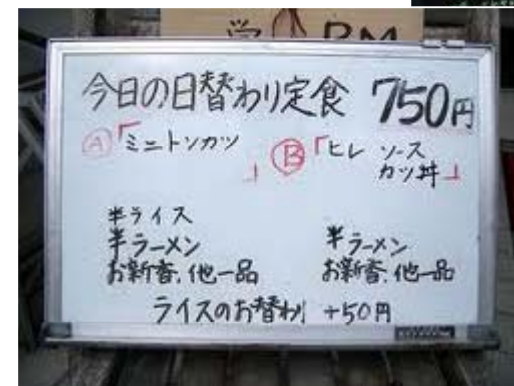 今日の日替わり定食 750円
Ⓐ「ミニトンカツ」
Ⓑ「ヒレ ソース
カツ丼」
半ライス
半ラーメン
お新香、他一品
半ラーメン
お新香、他一品
ライスのお替わり +50円